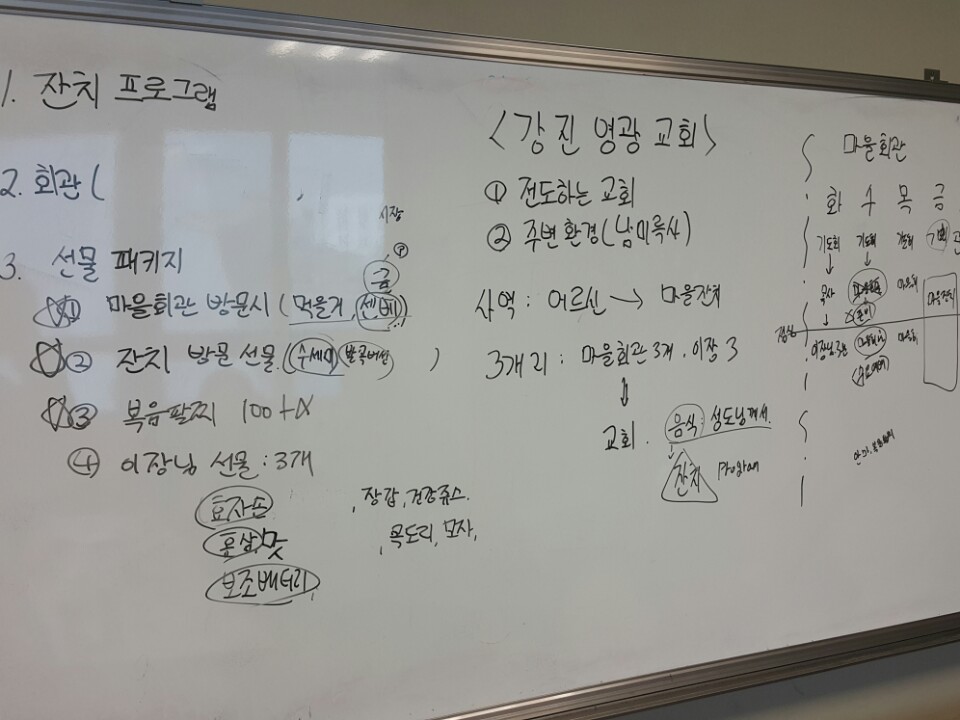 1. 잔치 프로그램
2. 회관 (
시장
3. 선물 패키지
① 마을회관 방문시 (먹을거, 센베)
② 잔치 방문 선물 (수세미, 발목버선)
③ 복음팔찌 100+α
④ 이장님 선물 : 3개
효자손
홍삼
보조배터리
, 장갑, 건강쥬스.
, 목도리, 모자,
<강진 영광 교회>
① 전도하는 교회
② 주변환경 (남미륵사)
사역 : 어르신 → 마을잔치
3개 리 : 마을회관 3개 . 이장 3
교회 . 음식 : 성도님께서.
잔치 Program
마을회관
화 수 목 금
기도회 기도회 기도회
목사
마을잔치
점심